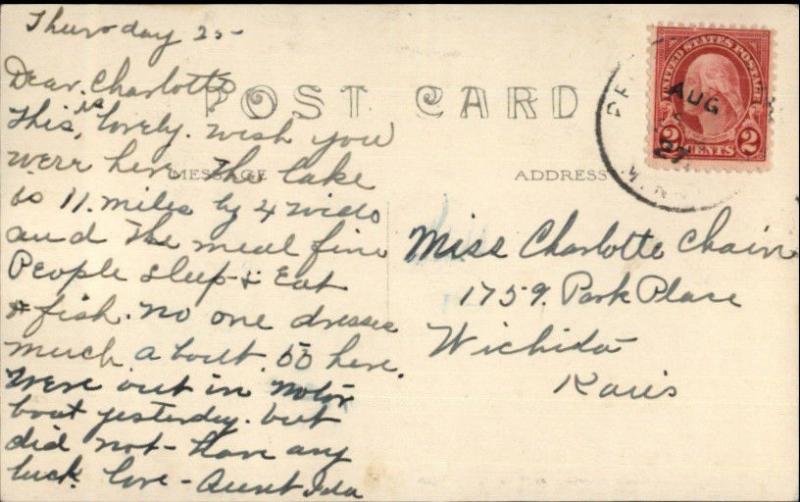 Thursday 25-
Dear Charlotte
This is lovely. wish you
were here. The lake
is 11. miles by 4 wide
and The meal fine
People sleep & Eat
& fish. no one dresses
much. about 50 here.
Were out in motor
boat yesterday. but
did not - have any
luck. love - Aunt Ida
POST CARD
MESSAGE
ADDRESS
UNITED STATES POSTAGE
2 CENTS 2
AUG
27
MINN
Miss Charlotte Chain
1759. Park Place
Wichita
Kans